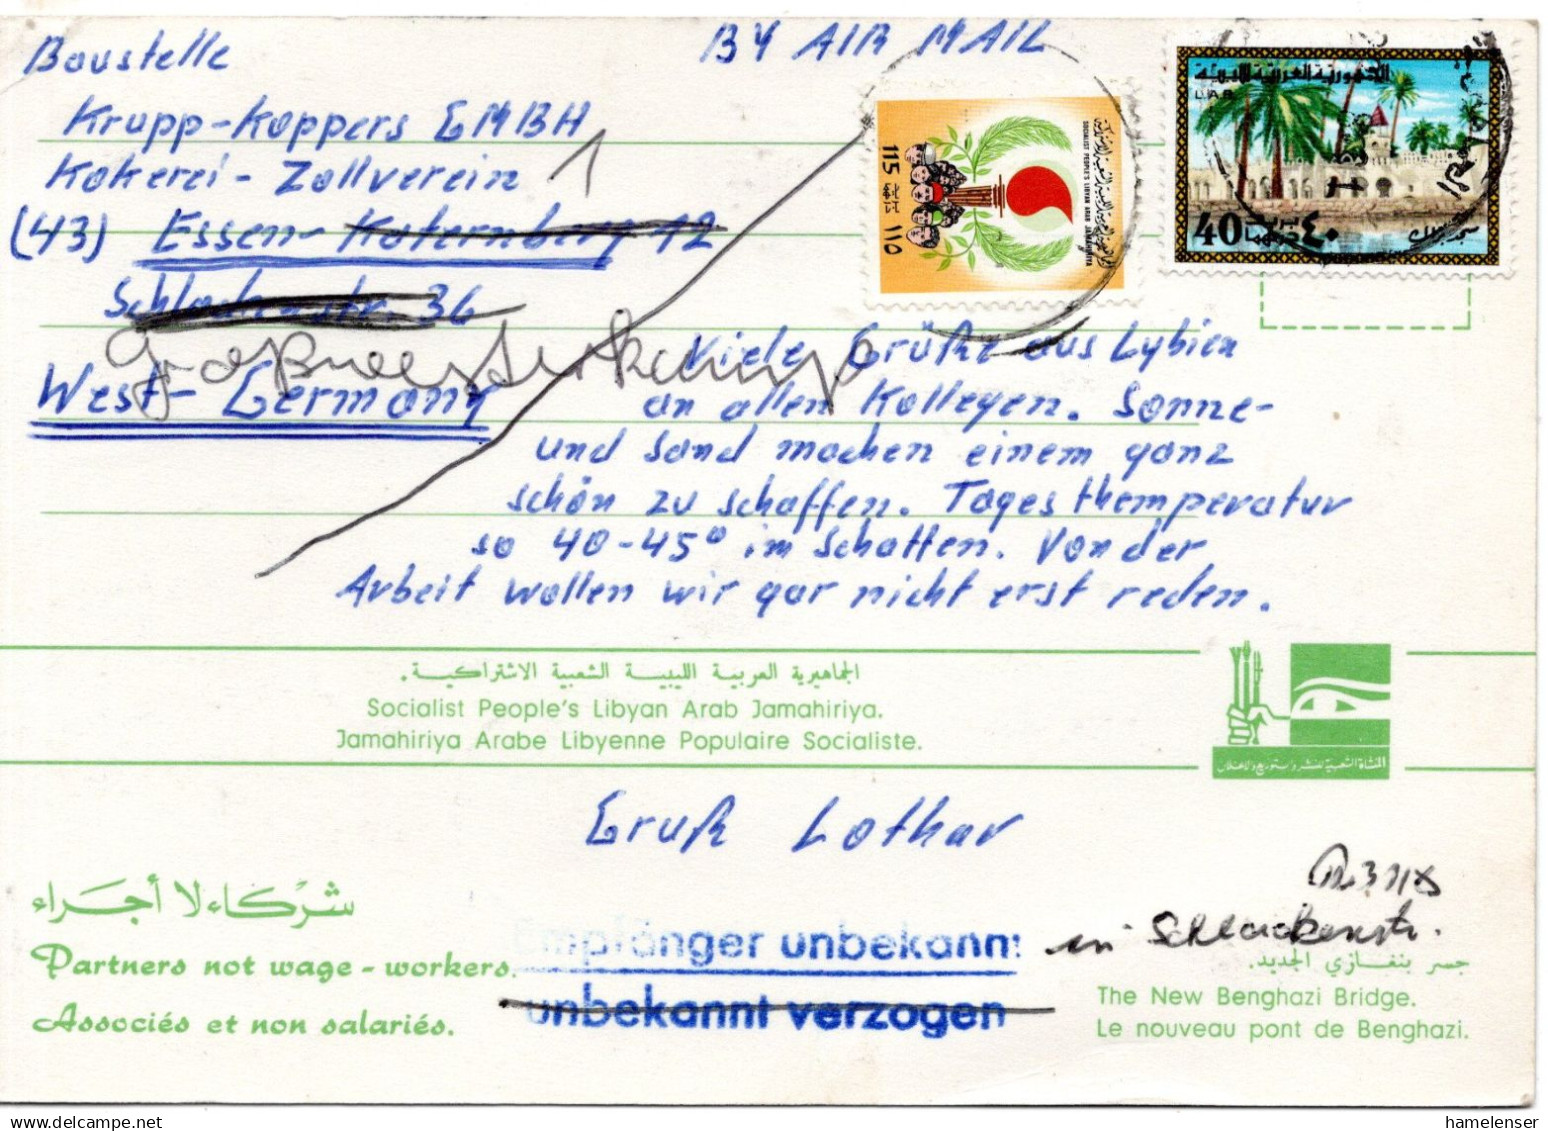 Baustelle
BY AIR MAIL
Krupp-Koppers GMBH
Kokerei-Zollverein
(43) Essen-Katernberg 12
Schlackenstr. 36
West-Germany
الجمهورية العربية الليبية
L.A.R
40
٤٠
SOCIALIST PEOPLE'S LIBYAN ARAB JAMAHIRIYA
115
١١٥
Viele Grüße aus Lybien
an allen Kollegen. Sonne-
und Sand machen einem ganz
schön zu schaffen. Tagesthemperatur
so 40-45° im Schatten. Von der
Arbeit wollen wir gar nicht erst reden.
الجماهيرية العربية الليبية الشعبية الاشتراكية.
Socialist People's Libyan Arab Jamahiriya.
Jamahiriya Arabe Libyenne Populaire Socialiste.
المنشأة الشعبية للنشر والتوزيع والاعلان
Gruß Lothar
شركاء لا أجراء
Partners not wage-workers.
Associés et non salariés.
Empfänger unbekannt
in Schlackenstr.
unbekannt verzogen
جسر بنغازي الجديد.
The New Benghazi Bridge.
Le nouveau pont de Benghazi.
hamelenser